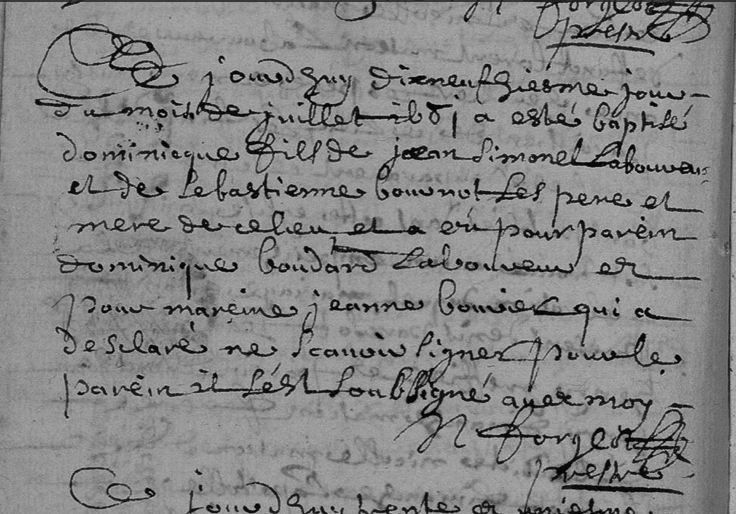 N forgeot
prestre
Ce jourdhuy dixneufhiesme jour
du mois de juillet 1681 a esté baptisé
dominicque fills de jean Simonel Laboureur
et de Sebastienne bournot Les pere et
mere de ce lieu et a eü pour parein
dominique boudard Laboureur et
pour mareine jeanne bouvier qui a
desclaré ne scavoir signer pour le
parein il s'est soubsigné avec moy
N forgeot
prestre
Ce jourdhuy trente et uniesme